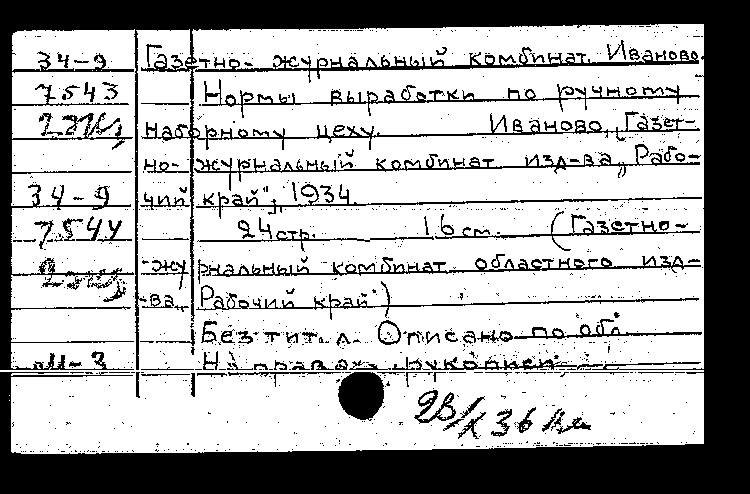 34-9 Газетно-журнальный комбинат. Иваново.
7543 Нормы выработки по ручному
2 экз наборному цеху. Иваново, [Газет-
но-журнальный комбинат изд-ва „Рабо-
34-9 чий край"], 1934.
7544 24 стр. 16 см. (Газетно-
2 экз -журнальный комбинат областного изд-
-ва „Рабочий край")
Без тит. л. Описано по обл.
На правах рукописи